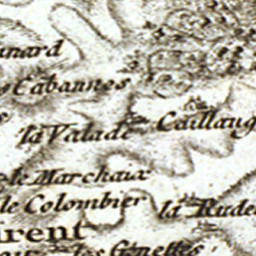 Cabannes
la Valade Caillaug
le Marchaux
le Colombier la Rude
rent
les Genettes